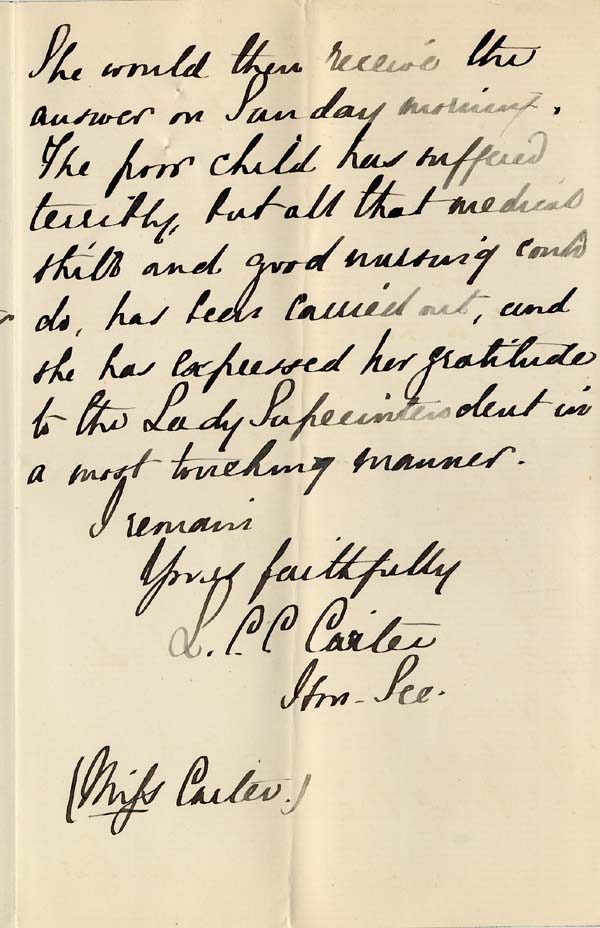 She would then receive the
answer on Sunday morning.
The poor child has suffered
terribly, but all that medical
skill and good nursing could
do, has been carried out, and
she has expressed her gratitude
to the Lady Superintendent in
a most touching manner.
I remain
Yours faithfully
L. C. C. Carter
Hon - Sec.
(Miss Carter.)